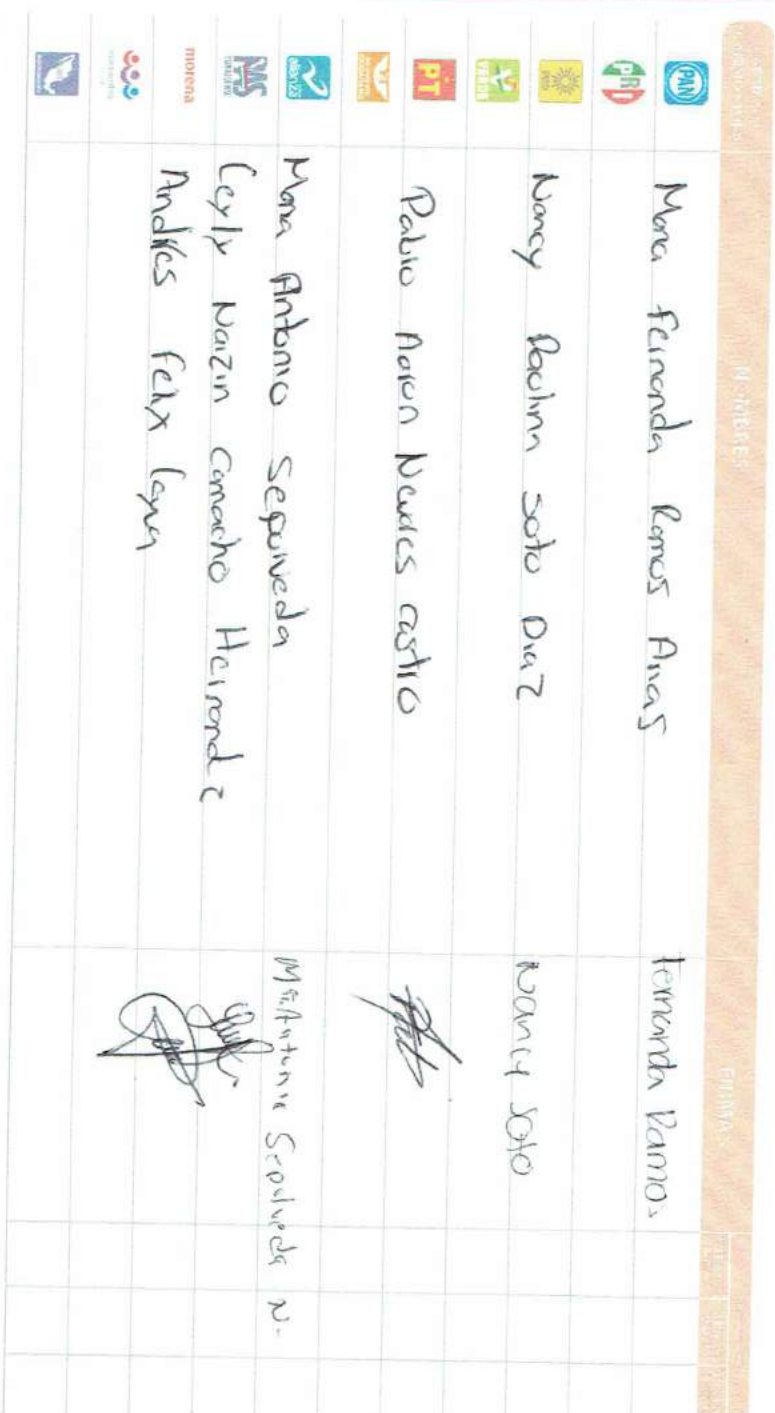 NOMBRES
FIRMAS
PAN
Maria Fernanda Ramos Arias
Fernanda Ramos
PRI
Nancy Paulina Soto Diaz
Nancy Soto
VERDE
PT
Pablo Aaron Nevares Castro
alianza
Maria Antonio Sepulveda
Ma. Antonia Sepulveda N.
PAS
Ceyly Naizin Camacho Hernandez
morena
Andres Felix